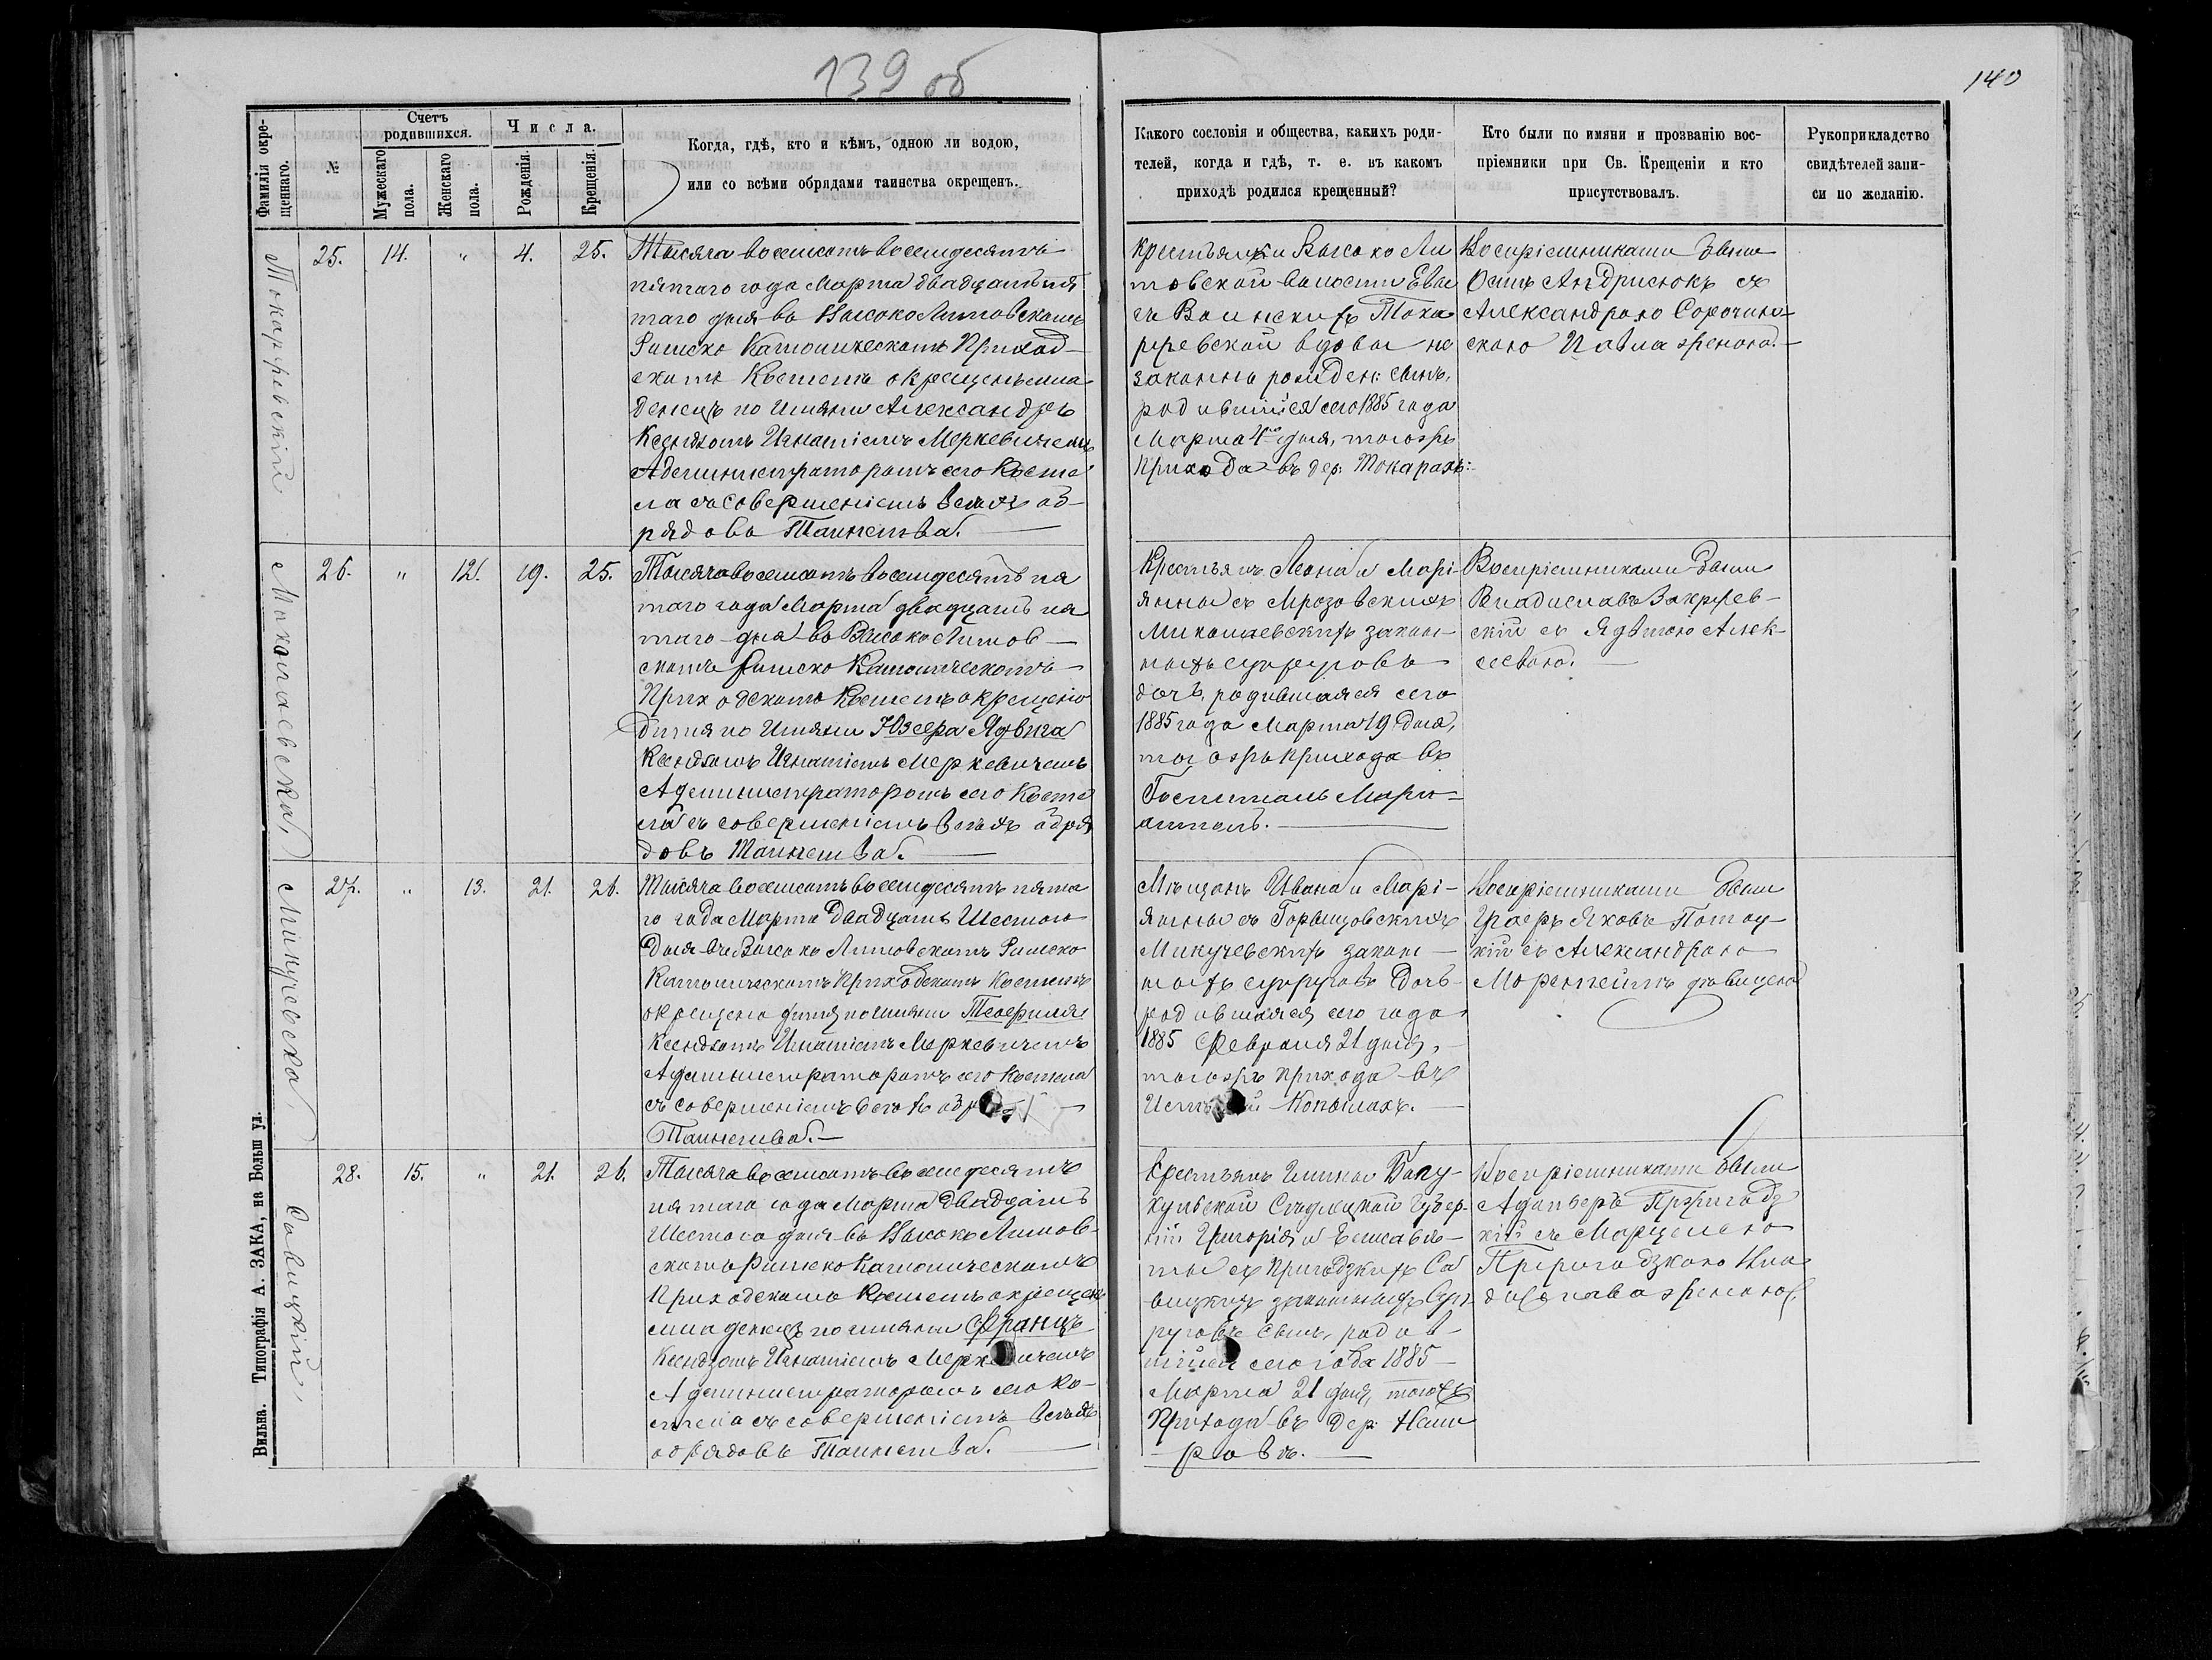 139 об
140
Фамилія окре-
щеннаго.
№
Счетъ
родившихся.
Мужескаго
пола.
Женскаго
пола.
Числа.
Рожденія.
Крещенія.
Когда, гдѣ, кто и кѣмъ, одною ли водою,
или со всѣми обрядами таинства окрещенъ.
Какого сословія и общества, какихъ роди-
телей, когда и гдѣ, т. е. въ какомъ
приходѣ родился крещенный?
Кто были по имяни и прозванію вос-
пріемники при Св. Крещеніи и кто
присутствовалъ.
Рукоприкладство
свидѣтелей запи-
си по желанію.
Токаржевскій
25. 14. " 4. 25.
Тысяча восемсотъ восемдесятъ
пятаго года Марта двадцать пя
таго дня въ Высоко Литовскомъ
Римско Католическомъ Приход-
скомъ Костелѣ окрещенъ мла
денецъ по Имяни Александръ
Ксендзомъ Игнатіемъ Меркевичемъ
Администраторомъ сего Косте
ла съ совершеніемъ всѣхъ об-
рядовъ Таинства.
Крестьянки Высоко Ли
товской волости Евы
съ Тока
ржевской вдовы не
законно рожден: сынъ,
родившійся сего 1885 года
Марта 4го дня, тогожъ
Прихода въ дер: Токарахъ:
Воспріемниками были
Осипъ Андрисюкъ съ
Александрою Сорочин-
скою Павла женою.
Миколаевска,
26. " 12. 19. 25.
Тысяча восемсотъ восемдесятъ пя
таго года Марта двадцать пя
таго дня въ Высоко Литов-
скомъ Римско Католическомъ
Приходскомъ Костелѣ окрещено
дитя по Имяни Юзефа Ядвига
Ксендзомъ Игнатіемъ Меркевичемъ
Администраторомъ сего Косте
ла съ совершеніемъ всѣхъ обря
довъ Таинства.
Крестьянъ Леона и Марі-
янны съ Мрозовскихъ
Миколаевскихъ закон-
ныхъ супруговъ
дочь, родившаяся сего
1885 года Марта 19 дня,
тогожъ прихода въ
Воспріемниками были
Владиславъ Закржев-
скій съ Ядвигою Алек-
Микучевска.
27. " 13. 21. 26.
Тысяча восемсотъ восемдесятъ пята
го года Марта двадцать Шестого
дня въ Высоко Литовскомъ Римско
Католическомъ Приходскомъ Костелѣ
окрещено дитя по имяни Теофиля
Ксендзомъ Игнатіемъ Меркевичемъ
Администраторомъ сего Костела
съ совершеніемъ всѣхъ
Таинства.
Мѣщанъ Ивана и Марі-
янны съ
Микучевскихъ закон-
ныхъ супруговъ дочь
родившаяся сего года
1885 Февраля 21 дня,
тогожъ прихода въ
Копылахъ.
Воспріемниками были
Графъ Яковъ Потоц-
кій съ Александрою
дѣвицею
Савицкій,
28. 15. " 21. 26.
Тысяча восемсотъ восемдесятъ
пятаго года Марта двадцать
Шестого дня въ Высоко Литов-
скомъ Римско Католическомъ
Приходскомъ Костелѣ окрещенъ
младенецъ по имяни Францъ
Ксендзомъ Игнатіемъ Меркевичемъ
Администраторомъ сего Ко-
стела съ совершеніемъ всѣхъ
обрядовъ Таинства.
Крестьянъ Гмины
Сѣдлецкой Губер-
ніи Григорія и Елисаве-
ты съ Пригодзкихъ Са
вицкихъ законныхъ Суп-
руговъ сынъ, родив-
шійся сего года 1885
Марта 21 дня, тогожъ
Прихода въ дер:
Воспріемниками были
кій съ Марцелею
Пржигодзкою Вла
дислава женою.
Вильна. Типографія А. ЗАКА, на Больш ул.